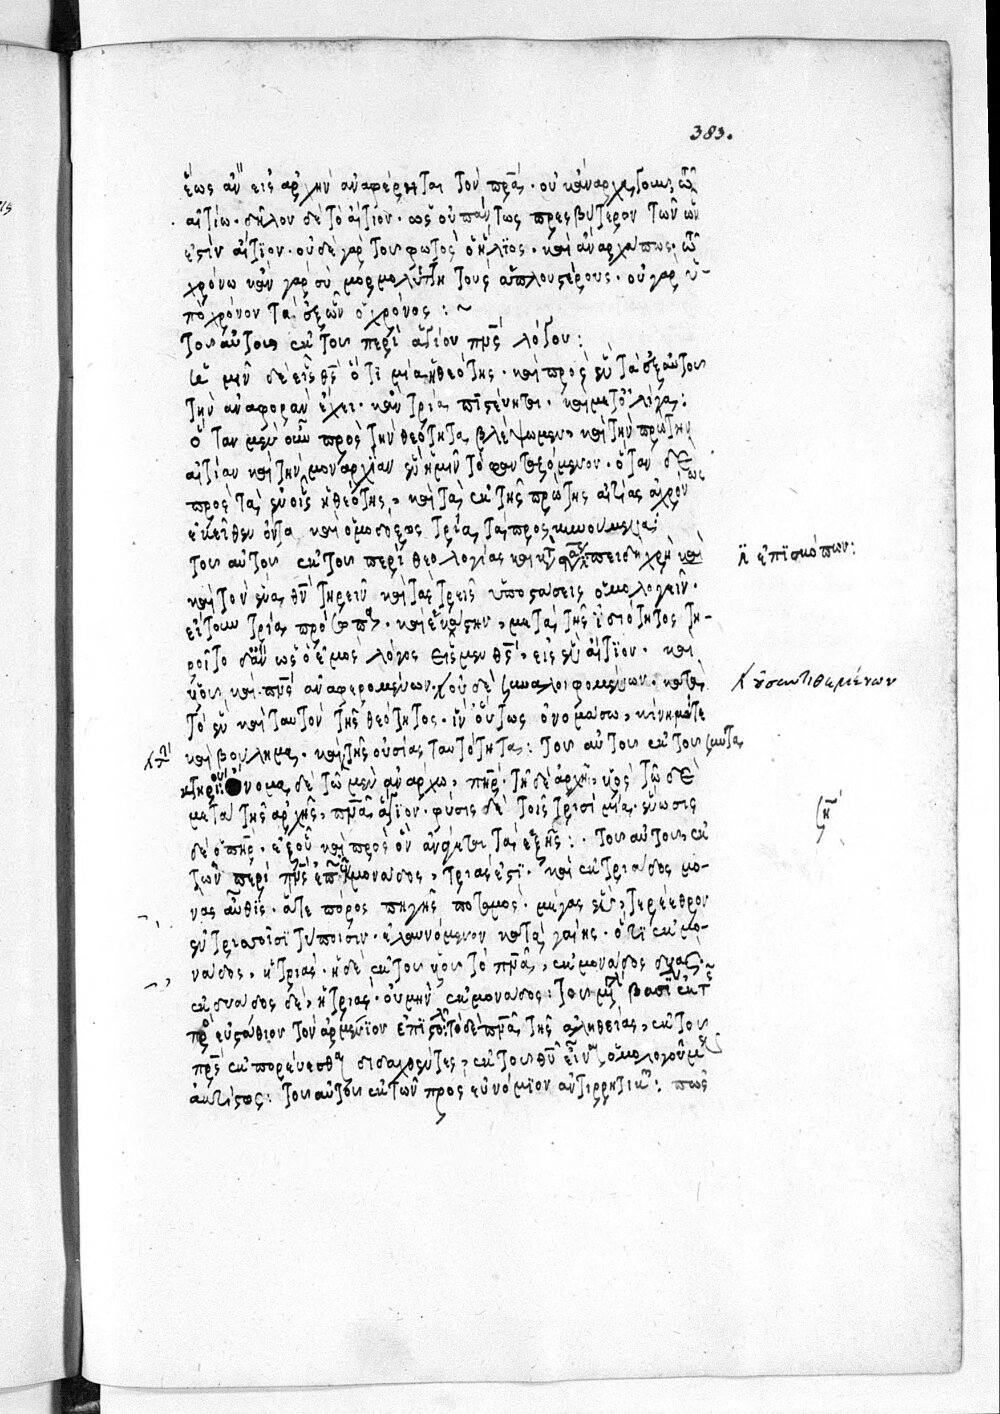 383.
ἕως ἂν εἰς ἀρχὴν ἀναφέρηται τὸν πρα. οὐκ ἄναρχα
αἰτίω. δῆλον δὲ τὸ αἴτιον. ὡς οὐ πάντως πρεσβύτερον τῶν ὧν
ἐστὶν αἴτιον. οὐδὲ γὰρ τοῦ φωτὸς ὁ ἥλιος. καὶ ἄναρχά πως.
χρόνω κἂν γὰρ σὺ μορμολύττη τοὺς ἁπλουστέρους. οὐ γὰρ ὑ-
πὸ χρόνον τὰ ἐξ ὧν ὁ χρόνος :~
τοῦ αὐτοῦ ἐκ τοῦ περὶ ἁγίου πνς λόγου :
μιν δὲ εἷς θς ὅτι μία ἡ θεότης. καὶ πρὸς ἓν τὰ ἐξ αὐτοῦ
τὴν ἀναφορὰν ἔχει. κἂν τρία πιστεύηται. καὶ μετ' ὀλίγα :
ὅταν μὲν οὖν πρὸς τὴν θεότητα βλέψωμεν, καὶ τὴν πρώτην
αἰτίαν καὶ τὴν μοναρχίαν ἓν ἡμῖν τὸ φανταζόμενον. ὅταν δὲ
πρὸς τὰ ἐν οἷς ἡ θεότης, καὶ τὰ ἐκ τῆς πρώτης αἰτίας ἀχρόνως
ἐκεῖθεν ὄντα καὶ ὁμοδόξως τρία τὰ προσκυνούμενα
τοῦ αὐτοῦ ἐκ τοῦ περὶ θεολογίας καὶ ἐπειδὴ χρὴ καὶ
ἐπισκόπων :
καὶ τὸν ἕνα θν τηρεῖν καὶ τὰς τρεῖς ὑποστάσεις ὁμολογεῖν.
εἴτουν τρία πρόσωπα. καὶ ἑκάστην, μετὰ τῆς ἰδιότητος τη-
ροῖτο δ' ἂν ὡς ὁ ἐμὸς λόγος εἷς μὲν θς, εἰς ἓν αἴτιον. καὶ
υου καὶ πνς ἀναφερομένων. οὐδὲ συναλοιφομένων. κατὰ
οὐ συντιθεμένων
τὸ ἓν καὶ ταυτὸν τῆς θεότητος. ἵν' οὕτως ὀνομάσω, κίνημά τε
καὶ βούλημα. καὶ τὴς οὐσίας ταυτότητα : τοῦ αὐτοῦ ἐκ τοῦ συντα
κτηρίου ὄνομα δὲ τῶ μὲν ἀνάρχω, πηρ. τῆ δὲ ἀρχῆ, υος τῶ δὲ
μετὰ τῆς ἀρχῆς, πνα ἅγιον. φύσις δὲ τοῖς τρισὶ μία. ἕνωσις
δὲ ὁ πηρ. ἐξ οὗ καὶ πρὸς ὃν ἀνάγεται τὰ ἑξῆς :. τοῦ αὐτοῦ, ἐκ
τῶν περὶ πνς ἐπῶν ἐκ μονάδος, τριάς ἐστι. καὶ ἐκ τριάδος μο-
νὰς αὖθις. οὔτε πόρος πηγῆς ποταμὸς. μέγας ἕν, τε ῥέεθρον
ἐν τρισσοῖσι τύποισιν. ἐλαυνόμενον κατὰ γαίης. ὅτι ἐκ μο-
νάδος, ἡ τριάς. ἡ δὲ ἐκ τοῦ υου τὸ πνα, ἐκ μονάδος δυάς.
ἐκ δυάδος δὲ, ἡ τριάς. οὐ μὴν ἐκ μονάδος : τοῦ μγ βασι ἐκ τς
πρὸς εὐστάθιον τὸν ἀρμένιον ἐπιστολ τὸ δὲ πνα τῆς ἀληθείας, ἐκ τοῦ
πρς ἐκπορεύεσθαι διδαχθέντες, ἐκ τοῦ θυ εἶναι ὁμολογοῦμεν
ἀκτίστως : τοῦ αὐτοῦ ἐκ τῶν πρὸς εὐνόμιον ἀντιρρητικῶν : πῶς